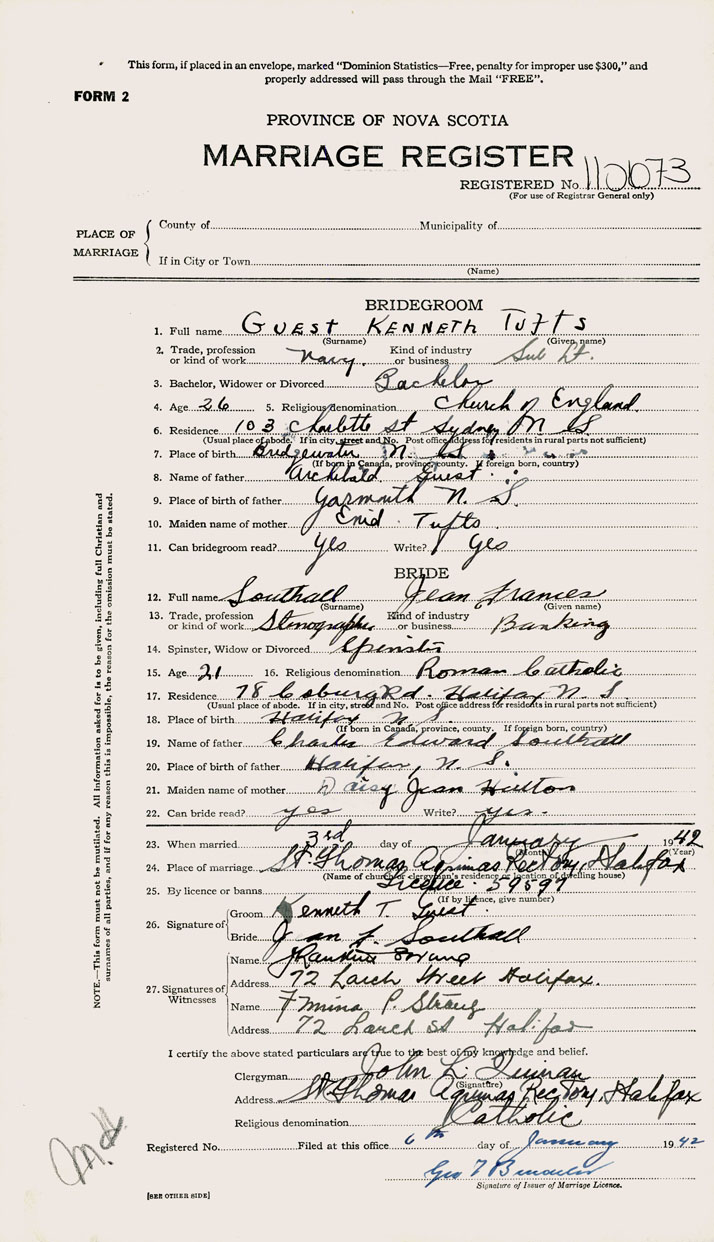 This form, if placed in an envelope, marked "Dominion Statistics—Free, penalty for improper use $300," and
properly addressed will pass through the Mail "FREE".
FORM 2
PROVINCE OF NOVA SCOTIA
MARRIAGE REGISTER
REGISTERED No.
(For use of Registrar General only)
PLACE OF MARRIAGE
County of Municipality of
If in City or Town
(Name)
BRIDEGROOM
1. Full name GUEST KENNETH TUFTS
(Surname) (Given name)
2. Trade, profession or kind of work Navy. Kind of industry or business Sub Lt.
3. Bachelor, Widower or Divorced Bachelor
4. Age 26 5. Religious denomination Church of England.
6. Residence 103 Charlotte St Sydney N S
(Usual place of abode. If in city, street and No. Post office address for residents in rural parts not sufficient)
7. Place of birth Bridgewater N. S
(If born in Canada, province, county. If foreign born, country)
8. Name of father Archibald Guest
9. Place of birth of father Yarmouth N. S.
10. Maiden name of mother Enid Tufts
11. Can bridegroom read? Yes Write? Yes
BRIDE
12. Full name Southall Jean Frances
(Surname) (Given name)
13. Trade, profession or kind of work Stenographer Kind of industry or business Banking
14. Spinster, Widow or Divorced Spinster
15. Age 21 16. Religious denomination Roman Catholic
17. Residence 78 Coburg Rd. Halifax N S.
(Usual place of abode. If in city, street and No. Post office address for residents in rural parts not sufficient)
18. Place of birth Halifax N S.
(If born in Canada, province, county, If foreign born, country)
19. Name of father Charles Edward Southall
20. Place of birth of father Halifax, N. S.
21. Maiden name of mother Daisy Jean Hutton
22. Can bride read? yes Write? yes.
23. When married 3rd day of January 1942
(Month) (Year)
24. Place of marriage St. Thomas Aquinas Rectory, Halifax
(Name of church or clergyman's residence or location of dwelling house)
25. By licence or banns Licence. 59597
(If by licence, give number)
26. Signature of
Groom Kenneth T. Guest.
Bride Jean F. Southall
27. Signatures of Witnesses
Name
Address 72 Larch Street Halifax.
Name P. Strong
Address 72 Larch St Halifax
I certify the above stated particulars are true to the best of my knowledge and belief.
Clergyman John L.
(Signature)
Address St. Thomas Aquinas Rectory, Halifax
Religious denomination Catholic
Registered No. Filed at this office 6th day of January 1942
Geo
Signature of Issuer of Marriage Licence.
[SEE OTHER SIDE]
NOTE.—This form must not be mutilated. All information asked for is to be given, including full Christian and
surnames of all parties, and if for any reason this is impossible, the reason for the omission must be stated.